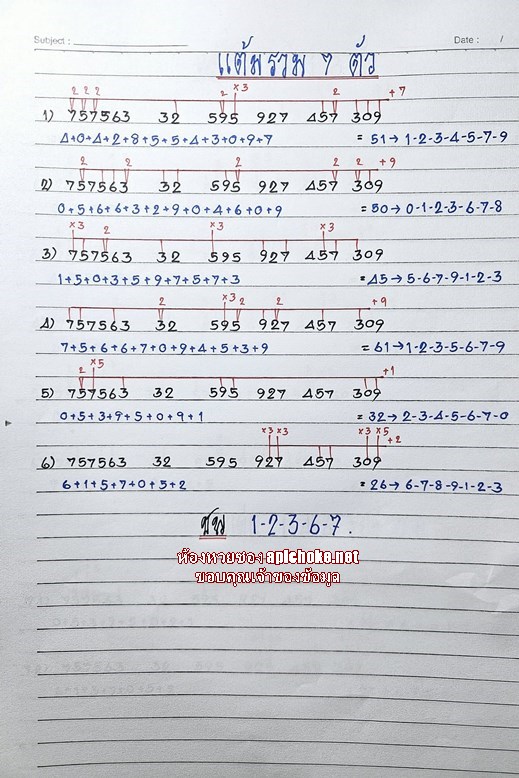 Subject : Date : /
แต้มรวม ๗ ตัว
2 2 2 2 x3 2 +7
1) 757563 32 595 927 457 309
4+0+4+2+8+5+5+4+3+0+9+7 = 51→ 1-2-3-4-5-7-9
2 2 2 2 2 +9
2) 757563 32 595 927 457 309
0+5+6+6+3+2+9+0+4+6+0+9 = 50→ 0-1-2-3-6-7-8
x3 2 x3 x3
3) 757563 32 595 927 457 309
1+5+0+3+5+9+7+5+7+3 = 45→ 5-6-7-9-1-2-3
2 x3 2 2 +9
4) 757563 32 595 927 457 309
7+5+6+6+7+0+9+4+5+3+9 = 61→ 1-2-3-5-6-7-9
2 x5 +1
5) 757563 32 595 927 457 309
0+5+3+9+5+0+9+1 = 32→ 2-3-4-5-6-7-0
x3 x3 x3 x5 +2
6) 757563 32 595 927 457 309
6+1+5+7+0+5+2 = 26→ 6-7-8-9-1-2-3
ชน 1-2-3-6-7.
ห้องหวยซอง apichoke.net
ขอบคุณเจ้าของข้อมูล